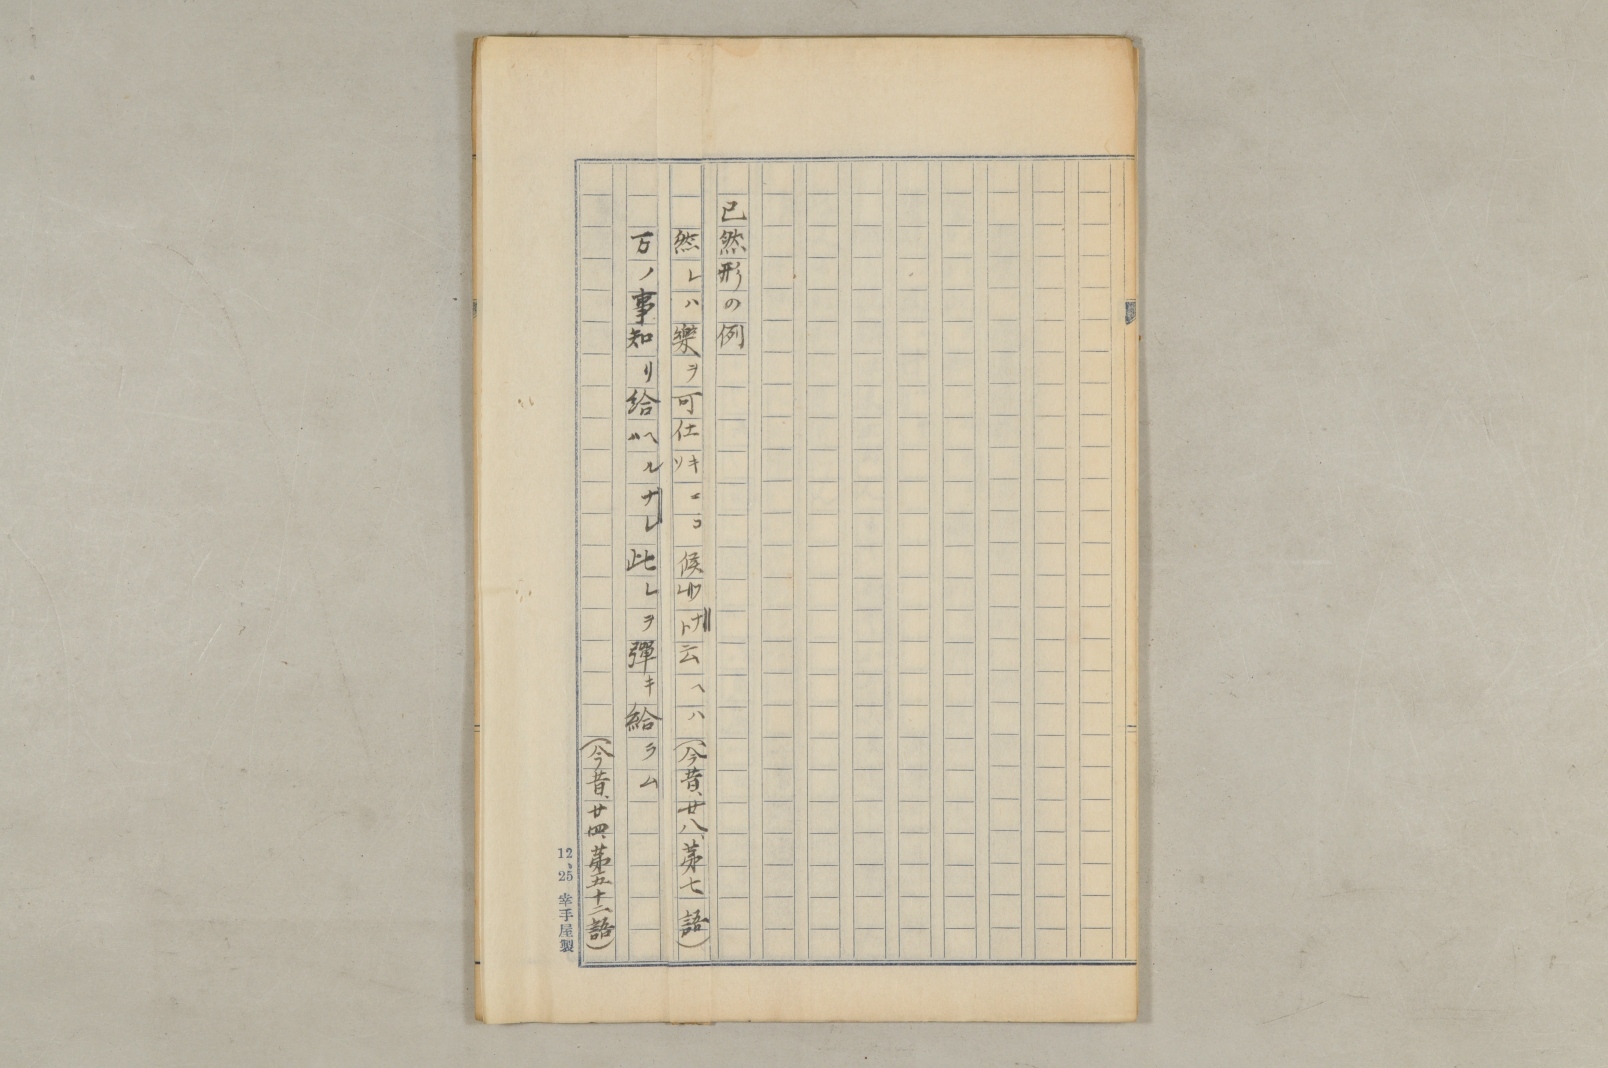 已然形の例
然レハ樂ヲ可仕キソニコ候ナレト云ヘハ(今昔、廿八、第七語)
万ノ事知リ給ヘルナレハ此レヲ彈キ給ラム
(今昔、廿四、第五十二語)
12、25 幸手屋製